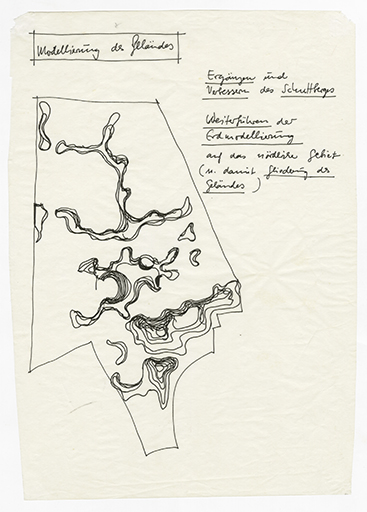 Modellierung des Geländes
Ergänzen und
Verbessern des Schuttbergs
Weiterführen der
Erdmodellierung
auf das nördliche Gebiet
(u. damit Gliederung des
Geländes)